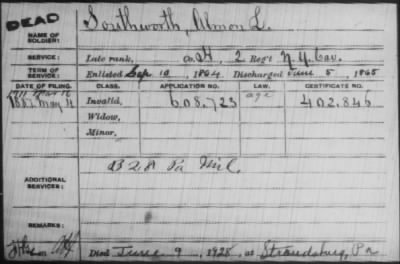 DEAD
Southworth, Almon L.
NAME OF SOLDIER:
SERVICE: Late rank, Co. H, 2 Reg't N.Y. Cav.
TERM OF SERVICE: Enlisted Sep. 10, 1864, Discharged June 5, 1865
DATE OF FILING. CLASS. APPLICATION NO. LAW. CERTIFICATE NO.
1887 May 4 Invalid, 608.723 age 402.846
Widow,
Minor,
ADDITIONAL SERVICES: B 28 Pa Mil.
REMARKS:
Died June 9, 1928, at Stroudsburg, Pa